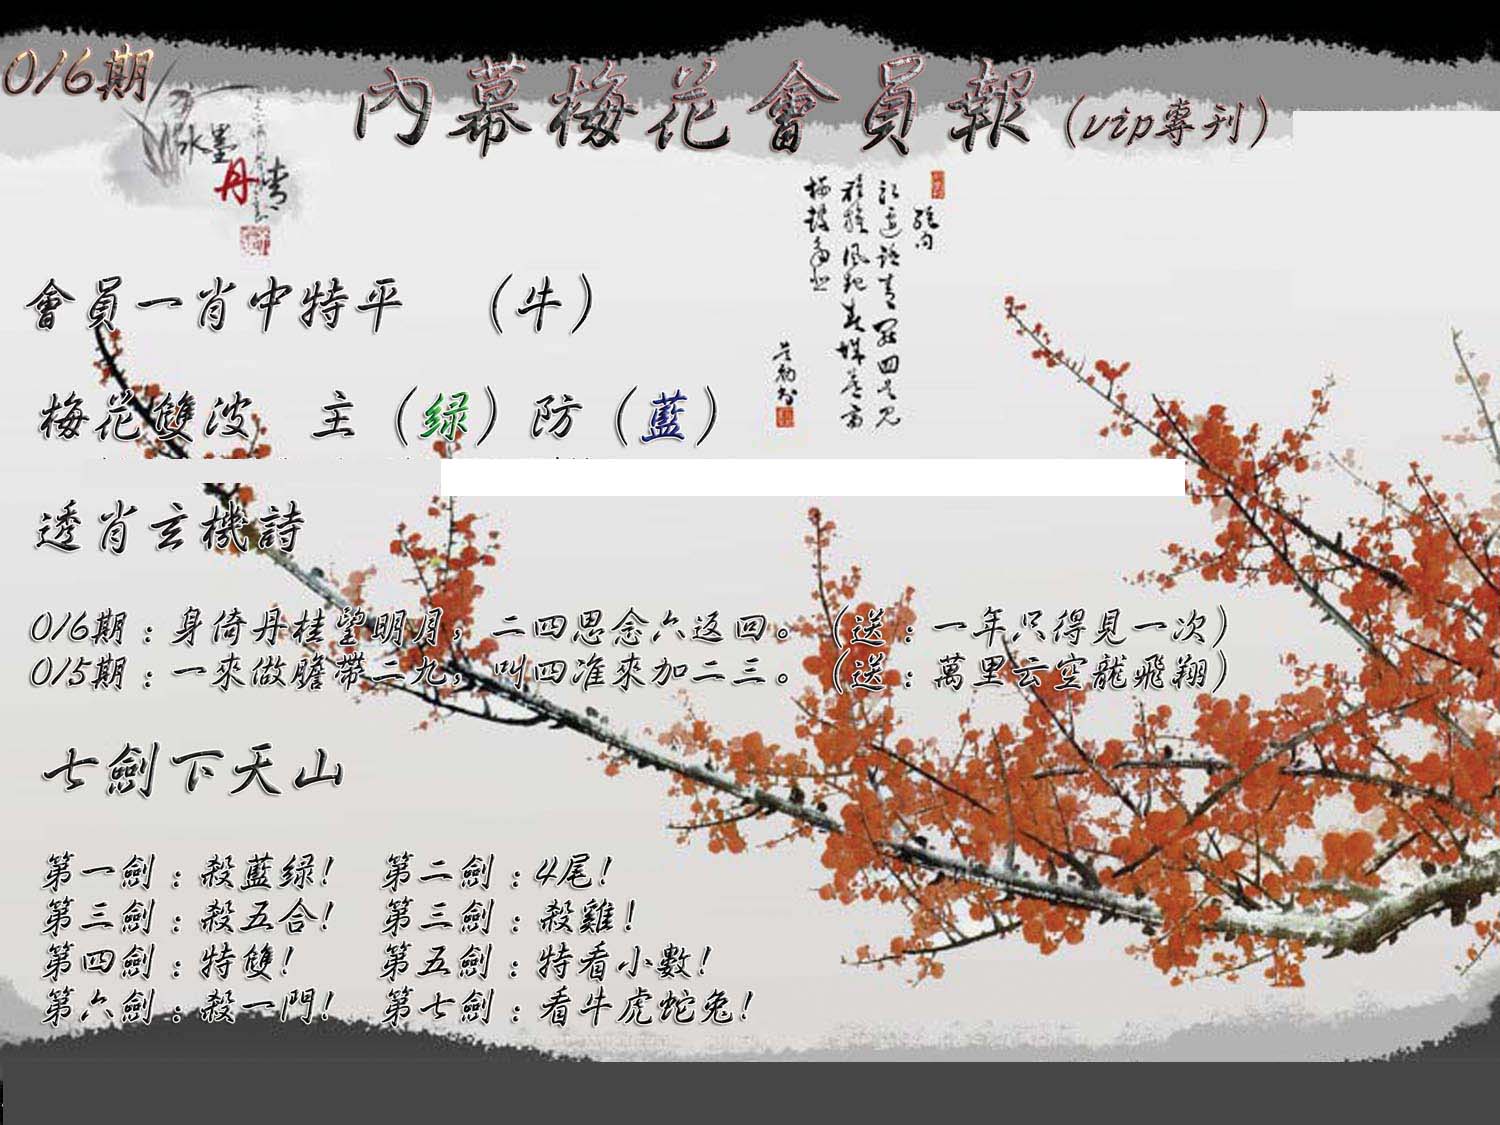 016期
內幕梅花會員報(vip專刊)
水墨
丹青
會員一肖中特平 （牛）
梅花雙波 主（绿）防（藍）
透肖玄機詩
016期：身倚丹桂望明月，二四思念六返回。（送：一年只得見一次）
015期：一來做膽帶二九，叫四准來加二三。（送：萬里云空龍飛翔）
七劍下天山
第一劍：殺藍绿！ 第二劍：4尾！
第三劍：殺五合！ 第三劍：殺雞！
第四劍：特雙！ 第五劍：特看小數！
第六劍：殺一門！ 第七劍：看牛虎蛇兔！